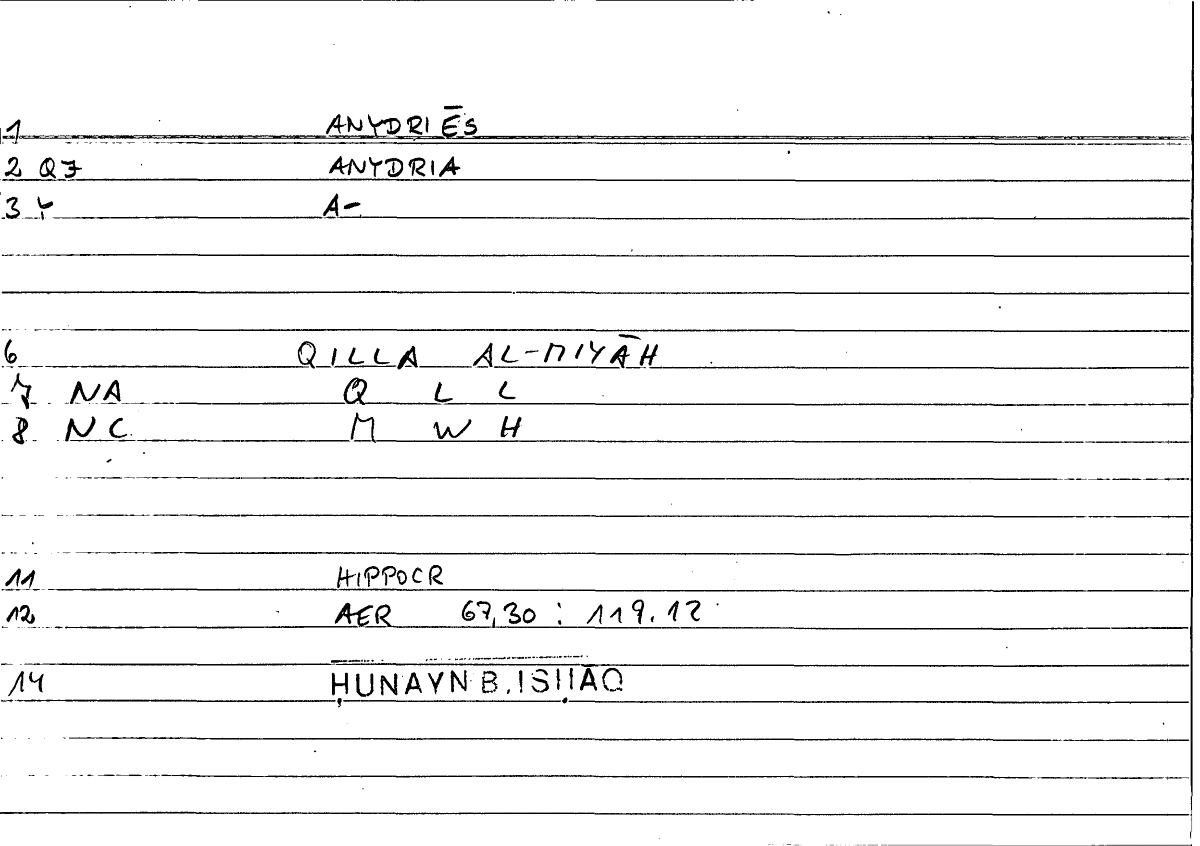 1 ANYDRIĒS
2 Q7 ANYDRIA
3 Y A-
6 QILLA AL-MIYĀH
7 NA Q L L
8 NC M W H
11 HIPPOCR
12 AER 67,30 : 119.12
14 ḤUNAYN B. ISḤĀQ